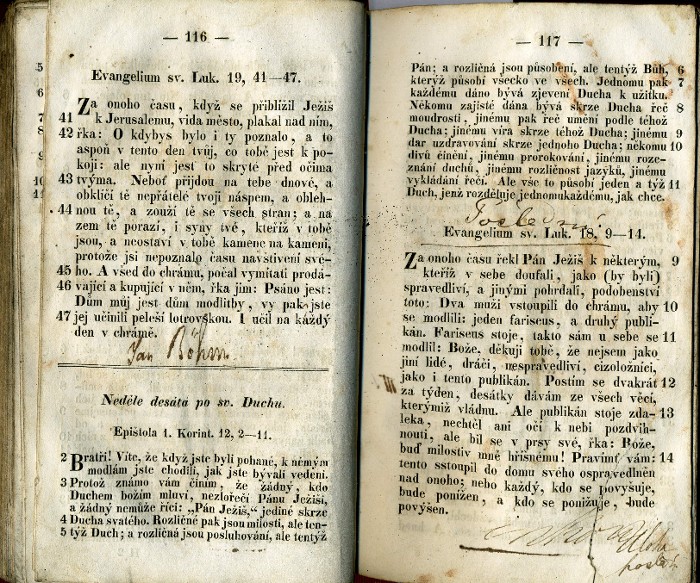 — 116 —
Evangelium sv. Luk. 19, 41—47.
Za onoho času, když se přiblížil Ježíš
41 k Jerusalemu, vida město, plakal nad ním,
42 řka: O kdybys bylo i ty poznalo, a to
aspoň v tento den tvůj, co tobě jest k po-
koji: ale nyní jest to skryté před očima
43 tvýma. Neboť přijdou na tebe dnové, a
obklíčí tě nepřátelé tvoji náspem, a obleh-
44 nou tě, a zouží tě se všech stran; a na
zem tě porazí, i syny tvé, kteříž v tobě
jsou, a neostaví v tobě kamene na kameni,
protože jsi nepoznalo času navštívení své-
45 ho. A všed do chrámu, počal vymítati prodá-
46 vající a kupující v něm, řka jim: Psáno jest:
Dům můj jest dům modlitby, vy pak jste
47 jej učinili peleší lotrovskou. I učil na každý
den v chrámě.
Jan Böhm
Neděle desátá po sv. Duchu.
Epištola 1. Korint. 12, 2—11.
2 Bratři! Víte, že když jste byli pohané, k němým
modlám jste chodili, jak jste bývali vedeni.
3 Protož známo vám činím, že žádný, kdo
Duchem božím mluví, nezlořečí Pánu Ježíši,
a žádný nemůže říci: „Pán Ježíš,“ jediné skrze
4 Ducha svatého. Rozličné pak jsou milosti, ale ten-
5 týž Duch; a rozličná jsou posluhování, ale tentýž
— 117 —
Pán; a rozličná jsou působení, ale tentýž Bůh, 6
kterýž působí všecko ve všech. Jednomu pak 7
každému dáno bývá zjevení Ducha k užitku.
Někomu zajisté dána bývá skrze Ducha řeč 8
moudrosti, jinému pak řeč umění podle téhož
Ducha; jinému víra skrze téhož Ducha; jinému 9
dar uzdravování skrze jednoho Ducha; někomu 10
divů činění, jinému prorokování, jinému roze-
znání duchů, jinému rozličnost jazyků, jinému
vykládání řečí. Ale vše to působí jeden a týž 11
Duch, jenž rozděluje jednomukaždému, jak chce.
Evangelium sv. Luk. 18, 9—14.
Za onoho času řekl Pán Ježíš k některým, 9
kteříž v sebe doufali, jako (by byli)
spravedliví, a jinými pohrdali, podobenství
toto: Dva muži vstoupili do chrámu, aby 10
se modlili: jeden fariseus, a druhý publi-
kán. Fariseus stoje, takto sám u sebe se 11
modlil: Bože, děkuji tobě, že nejsem jako
jiní lidé, dráči, nespravedliví, cizoložníci,
jako i tento publikán. Postím se dvakrát 12
za týden, desátky dávám ze všech věcí,
kterýmiž vládnu. Ale publikán stoje zda- 13
leka, nechtěl ani očí k nebi pozdvih-
nouti, ale bil se v prsy své, řka: Bože,
buď milostiv mně hříšnému! Pravímť vám: 14
tento sstoupil do domu svého ospravedlněn
nad onoho; nebo každý, kdo se povyšuje,
bude ponížen, a kdo se ponižuje, bude
povýšen.